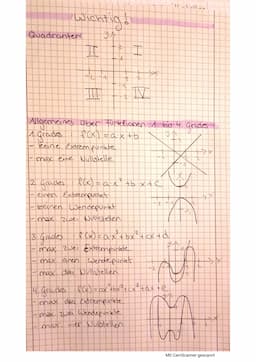 Wichtig!
Quadranten:
II I
III IV
Allgemeines über Funktionen 1. bis 4. Grades
1. Grades: f(x) = ax+b
- keine Extrempunkte
- max. eine Nullstelle
2. Grades f(x) = a·x² + bx + c
- einen Extrempunkt
- keinen Wendepunkt
- max. zwei Nullstellen
3. Grades f(x) = ax³+bx²+cx+d
- max. zwei Extrempunkte
- max. einen Wendepunkt
- max. drei Nullstellen
4. Grades
- max. drei Extrempunkte
- max. zwei Wendepunkte
- max. vier Nullstellen
Mit CamScanner gescannt